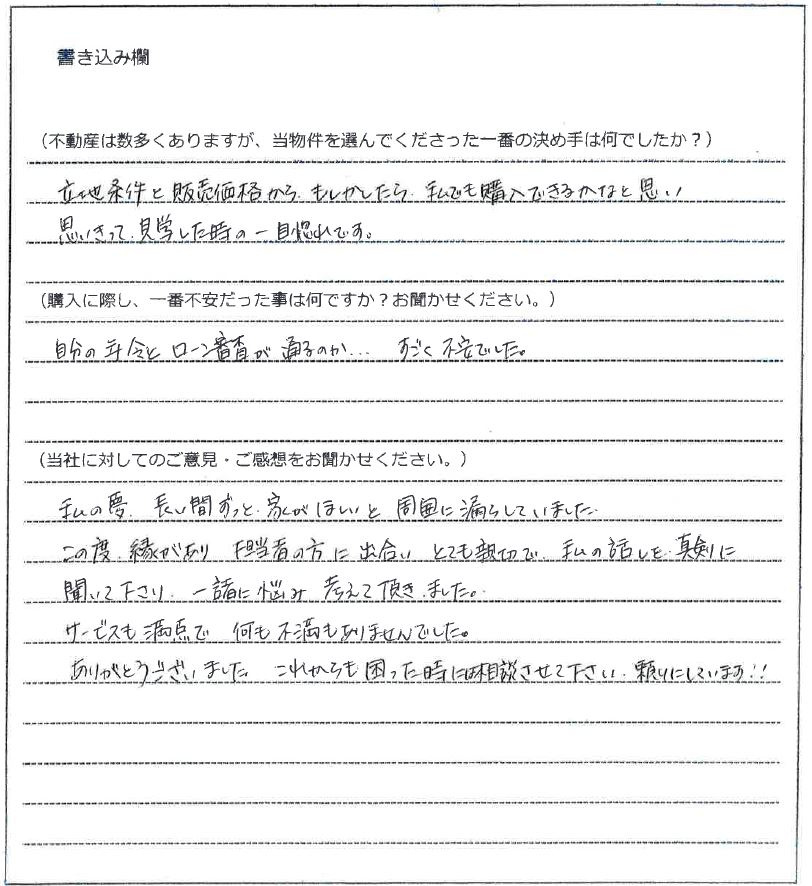 書き込み欄
（不動産は数多くありますが、当物件を選んでくださった一番の決め手は何でしたか？）
立地条件と販売価格から、もしかしたら、私でも購入できるかなと思い
思いきって、見学した時の一目惚れです。
（購入に際し、一番不安だった事は何ですか？お聞かせください。）
自分の年令とローン審査が通るのか… すごく不安でした。
（当社に対してのご意見・ご感想をお聞かせください。）
私の夢、長い間ずっと、家がほしいと周囲に漏らしていました。
この度、縁があり担当者の方に出合いとても親切で、私の話しを、真剣に
聞いて下さり、一諸に悩み考えて頂きました。
サービスも満点で何も不満もありませんでした。
ありがとうございました。これからも困った時には相談させて下さい。頼りにしています!!